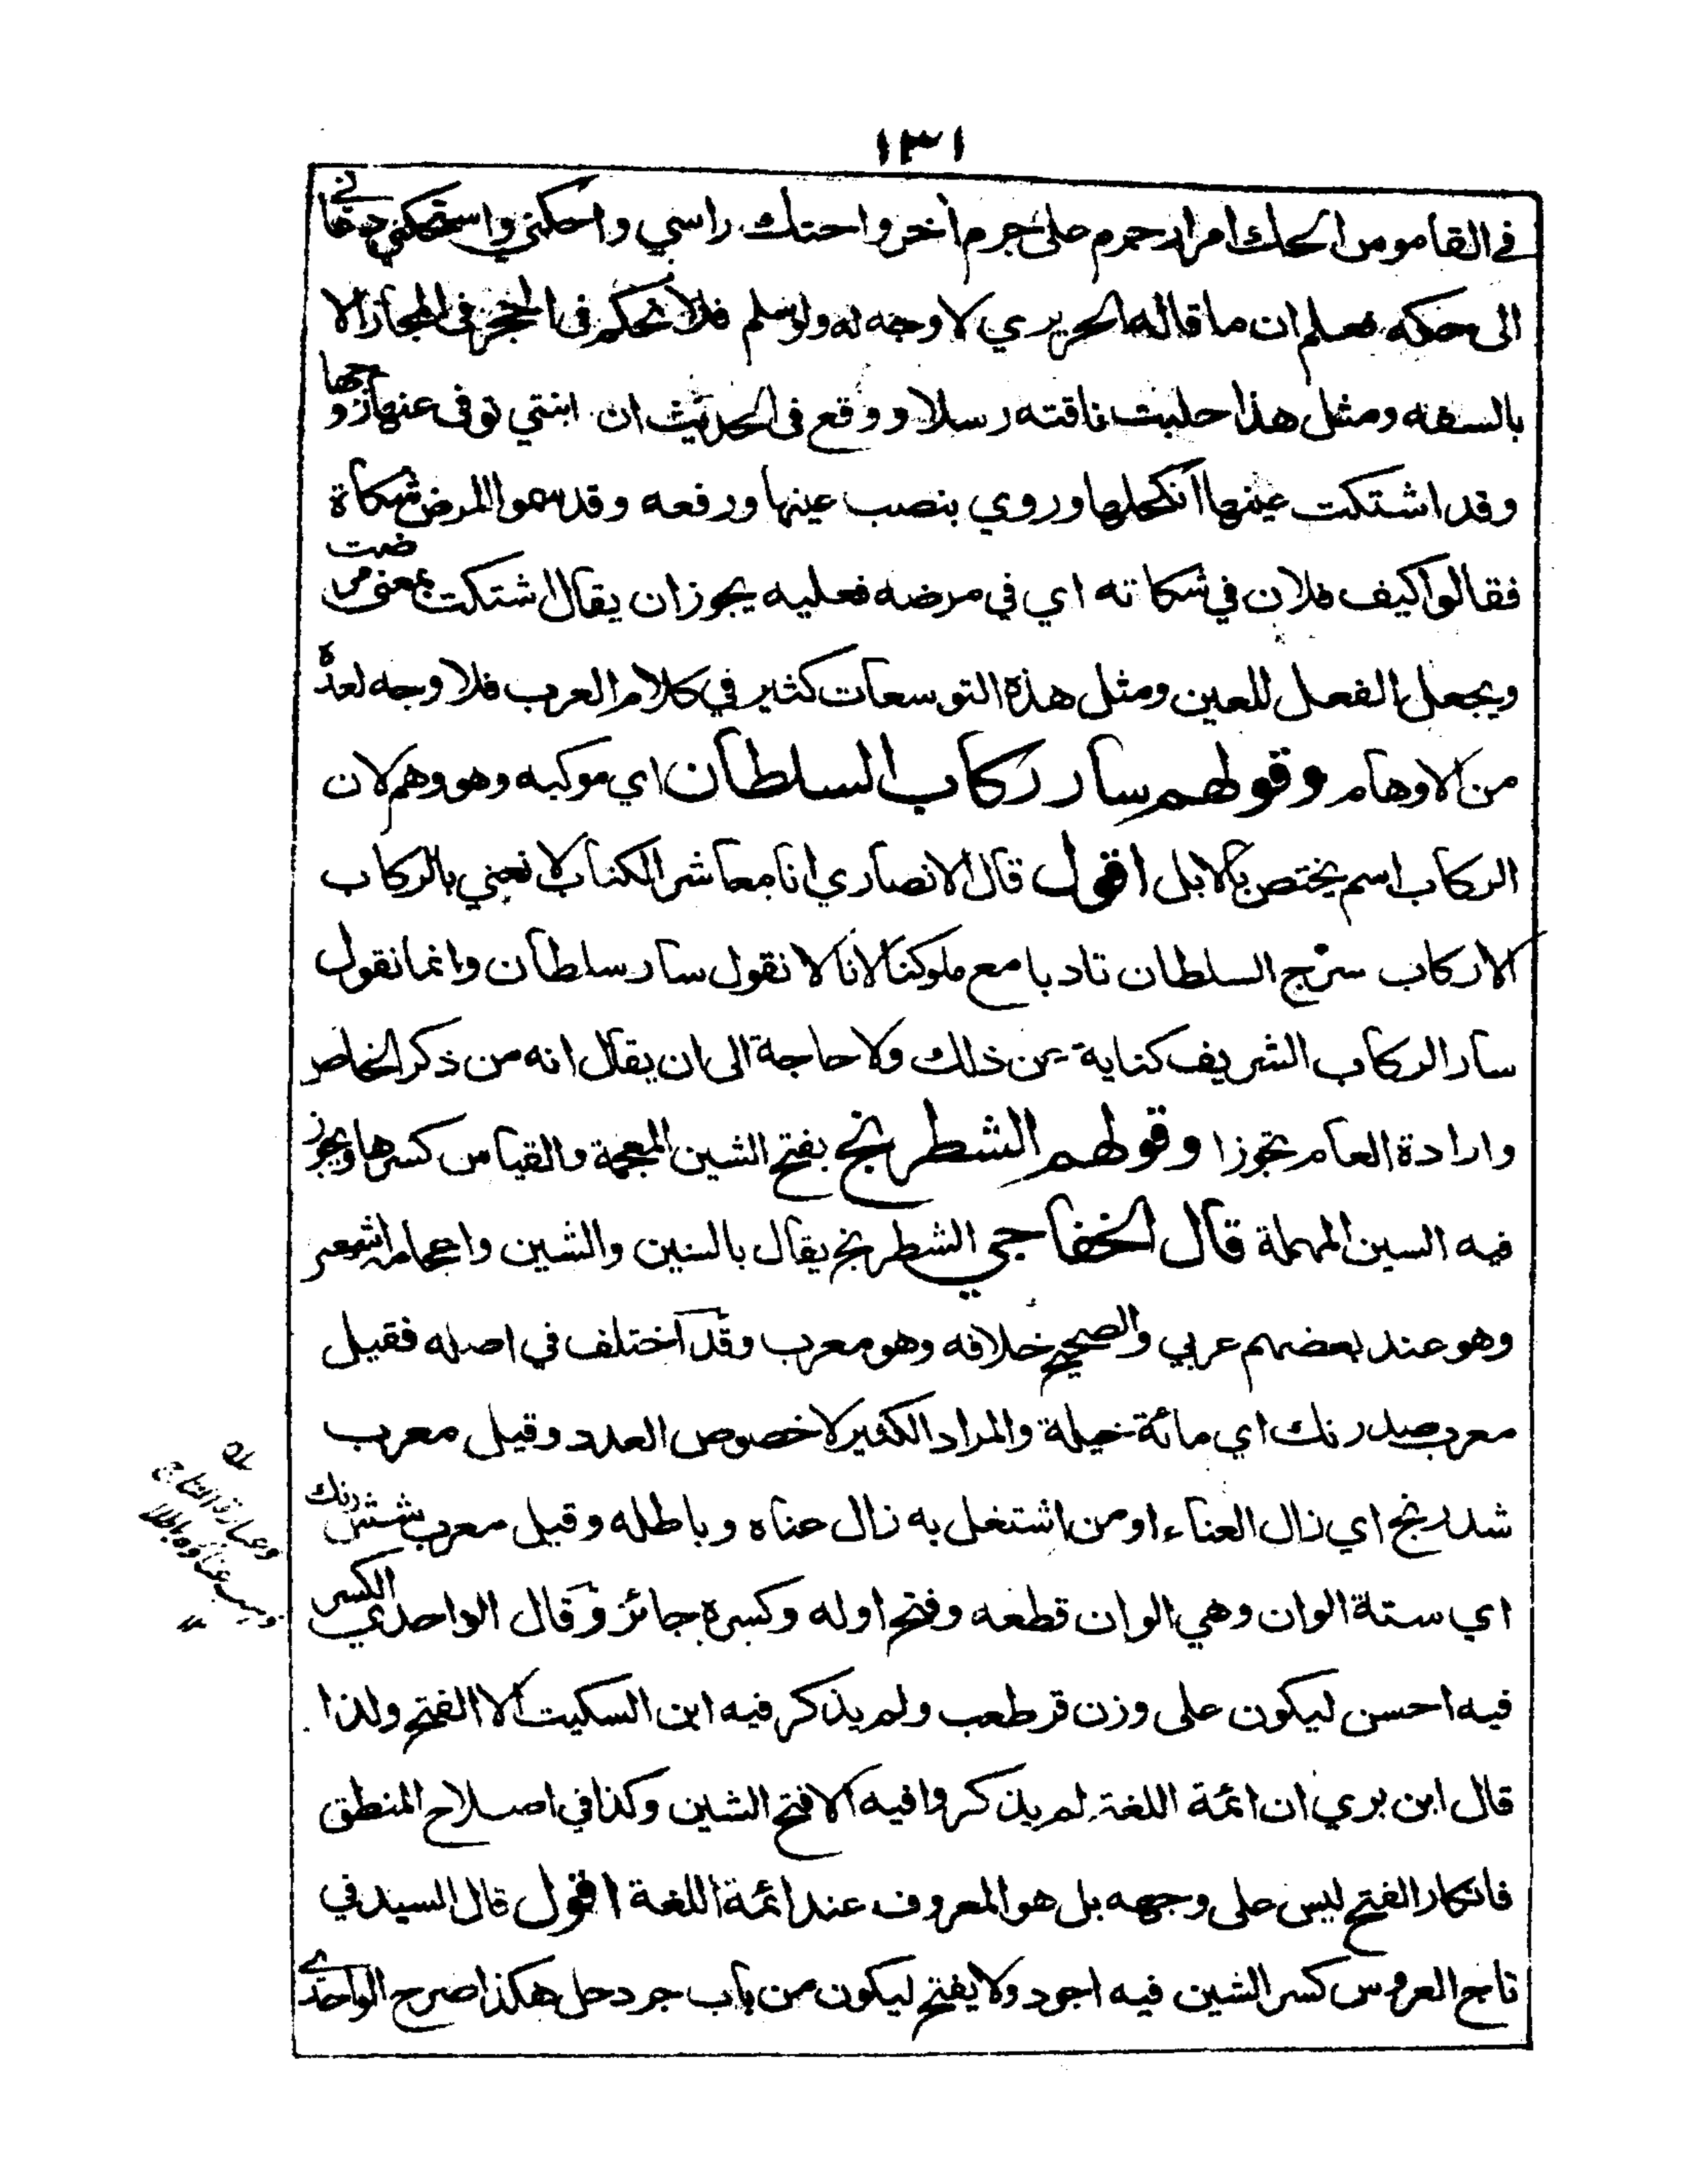 ١٣١
في القاموس الحك امرار جرم على جرم آخر واحتك راسي واحكني واستحكني دعاني
الى حكه فعلم ان ما قاله الحريري لا وجه له ولو سلم فلا تحكم في الحجر في المجاز الا
بالسفه ومثل هذا حلبت ناقته رسلا ووقع في الحديث ان ابنتي توفى عنها زوجها
وقد اشتكت عينها انكحلها وروي بنصب عينها ورفعه وقد سموا المرض شكاة
فقالوا كيف فلان في شكاته اي في مرضه فعليه يجوز ان يقال اشتكت بمعنى مرضت
ويجعل الفعل للعين ومثل هذة التوسعات كثير في كلام العرب فلا وجه لعده
من الاوهام وقولهم سار ركاب السلطان اي موكبه وهو وهم لان
الركاب اسم يختص بالابل اقول قال الانصاري انا معاشر الكتاب لا نعني بالركاب
الا ركاب سرج السلطان تادبا مع ملوكنا لانا لا نقول سار سلطان وانما نقول
سار الركاب الشريف كناية عن ذلك ولا حاجة الى ان يقال انه من ذكر الخاص
وارادة العام تجوزا وقولهم الشطرنج بفتح الشين المعجمة والقياس كسرها ويجوز
فيه السين المهملة قال الخفاجي الشطرنج يقال بالسنين والشين واعجامه اشهر
وهو عند بعضهم عربي والصحيح خلافه وهو معرب وقد اختلف في اصله فقيل
معرب صدرنك اي مائة حيلة والمراد الكثير لا خصوص العدد وقيل معرب
شدرنج اي زال العناء او من اشتغل به زال عناه وباطله وقيل معرب شش رنك
اي ستة الوان وهي الوان قطعه وفتح اوله وكسره جائز وقال الواحدي الكسر
فيه احسن ليكون على وزن قرطعب ولم يذكر فيه ابن السكيت الا الفتح ولذا
قال ابن بري ان ائمة اللغة لم يذكروا فيه الا فتح الشين وكذا في اصلاح المنطق
فانكار الفتح ليس على وجهه بل هو المعروف عند ائمة اللغة اقول قال السيد في
تاج العروس كسر الشين فيه اجود ولا يفتح ليكون من باب جردحل هكذا صرح الواحدي
وعبارة التاج
عناؤه باطلا